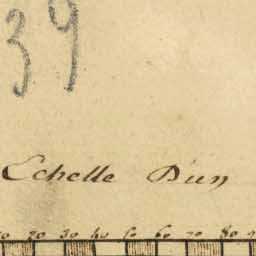 39
Echelle D'un
20 30 40 50 60 70 80